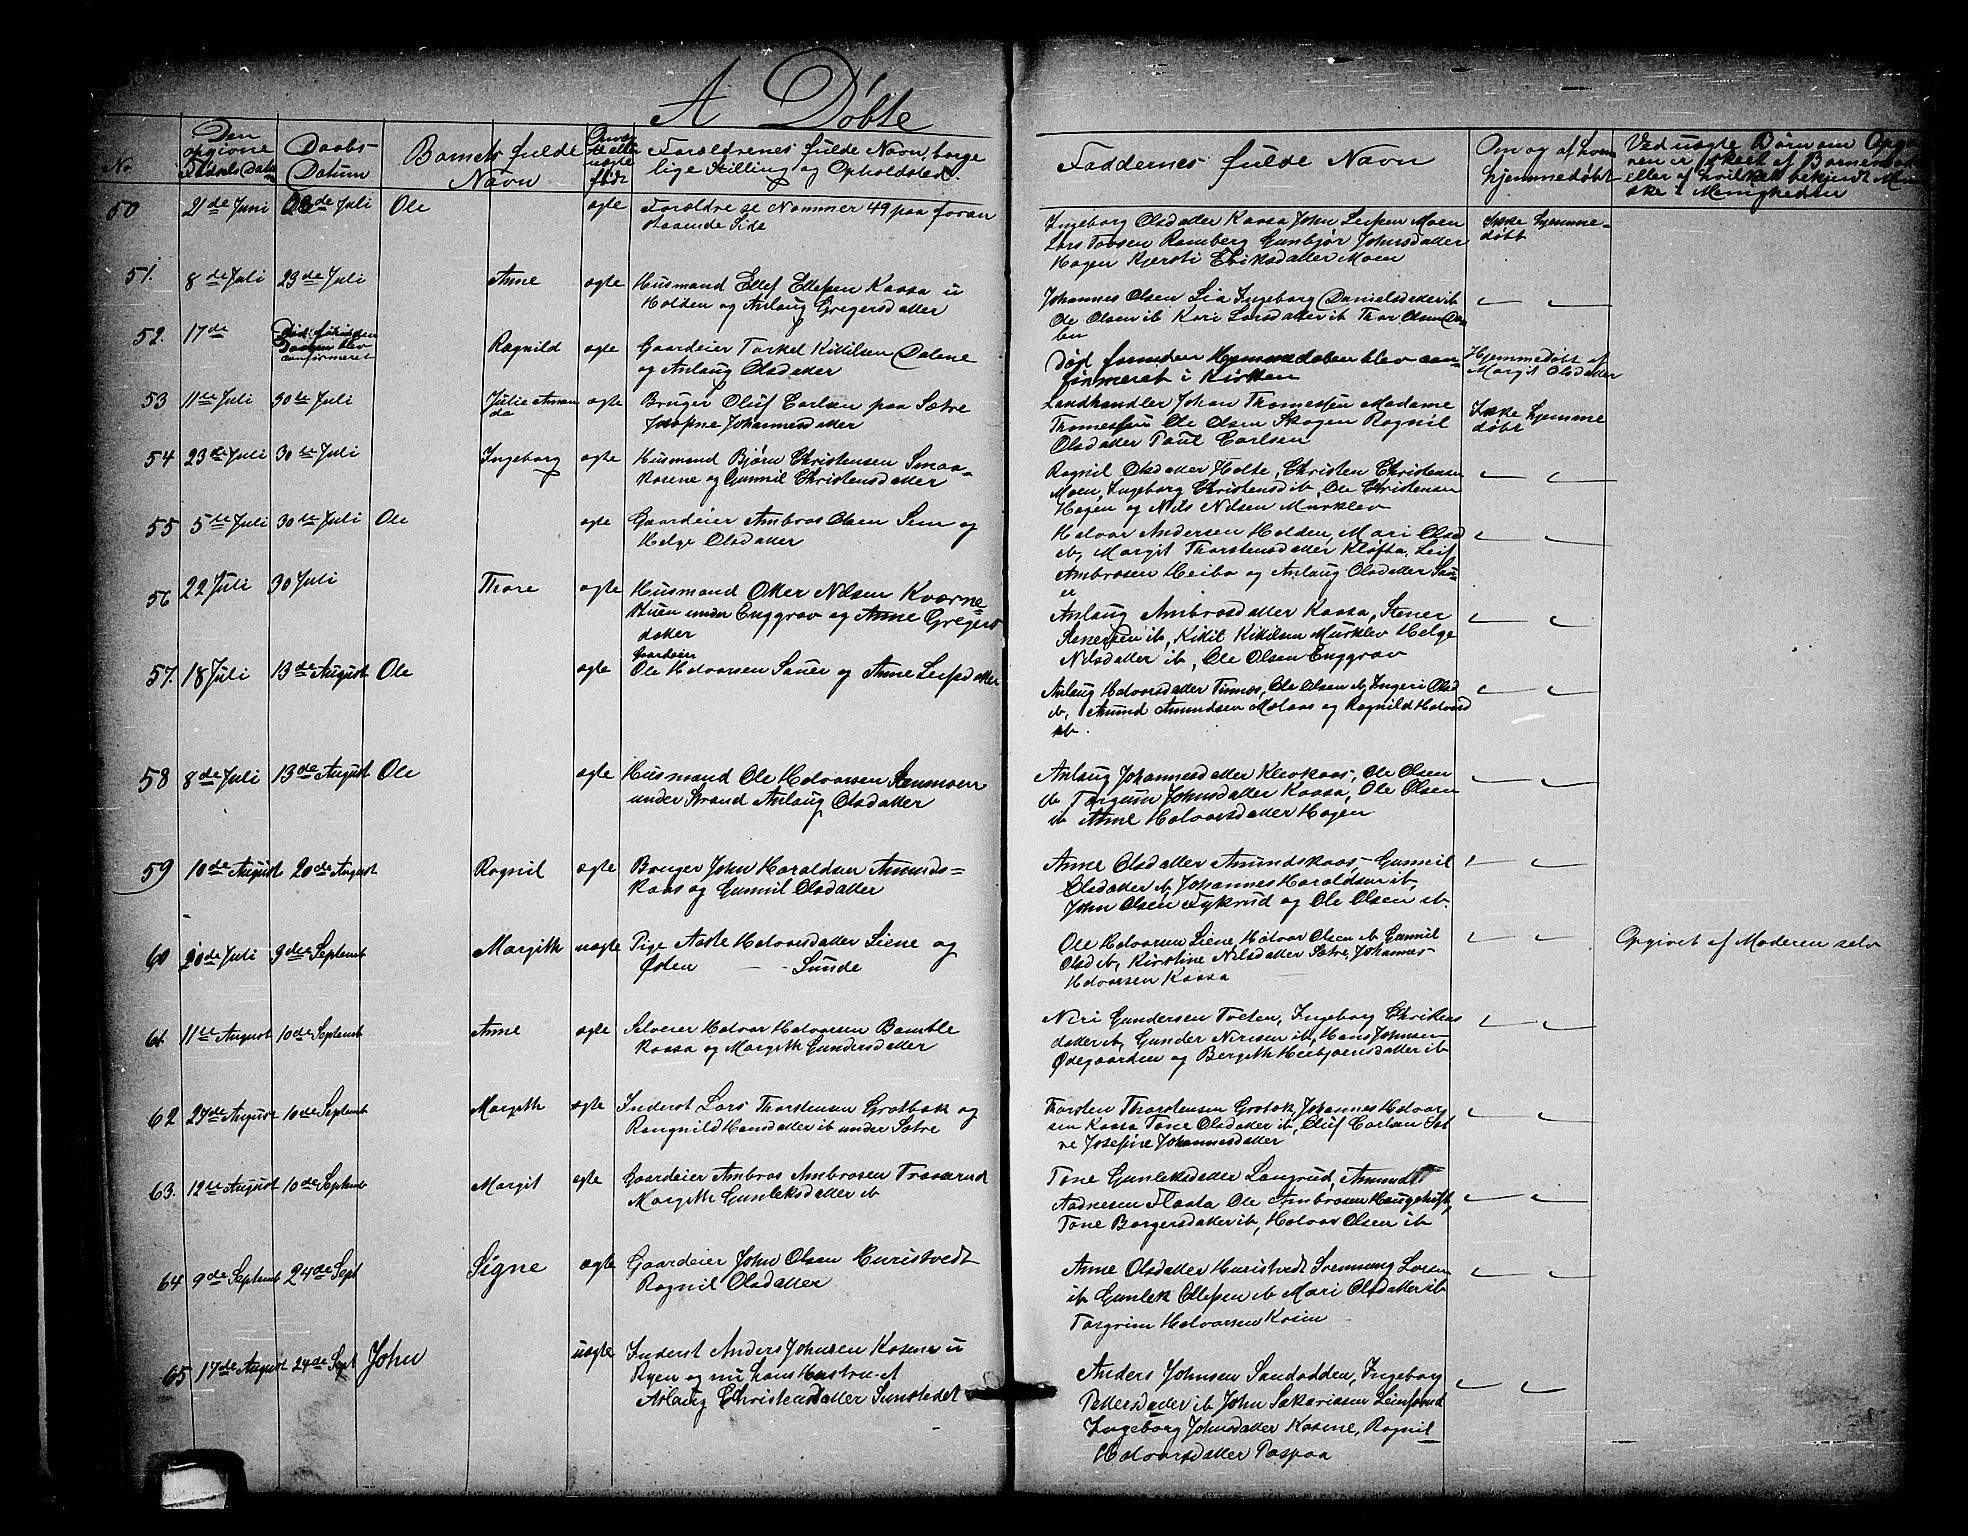 A Døbte
No
Den opgivne Fødsels Datum
Daabs-Datum
Barnets fulde Navn
Om ægte eller uægte født
Forældrenes fulde Navn, borgelige Stilling og Opholdsted
Faddernes fulde Navn
Om og af hvem hjemmedøbt
Ved uægte Børn om Opgaven er skeet af Barnemoder eller af hvilket bekjendt Menneske i Menigheden
50 21de Juni 23de Juli Ole ægte Forældre se Nommer 49 paa foran
staaende Side
Ingeborg Olsdatter Kaasa John Leifsen Moen
Lars Tovsen Ramberg Gunbjør Johnsdatter
Hagen Kjersti Eriksdatter Moen
Ikke hjemme-
døbt
51. 8de Juli 23de Juli Anne ægte Husmand Ellef Ellefsen Kaasa u
Holden og Anlaug Gregersdatter
Johannes Olsen Lia Ingeborg Danielsdatter ib
Ole Olsen ib Kari Larsdatter ib Thor Olsen Da-
len
52. 17de
Død førinden
Daaben blev
confirmeret
Ragnild ægte Gaardeier Torkel Kittilsen Dalene
og Anlaug Olsdatter
Død forinden Hjemmedaaben blev con-
firmeret i Kirken
Hjemmedøbt af
Margit Olsdatter
53 11te Juli 30te Juli Julie Aman
da ægte Bruger Oluf Carlsen paa Sætre
Josefine Johannesdatter
Landhandler Johan Thomessen Madame
Thomessen Ole Olsen Skogen Ragnil
Olsdatter Paul Carlsen
Ikke hjemme
døbt
54 23de Juli 30te Juli Ingeborg ægte Husmand Bjørn Christensen Smaa-
kosene og Gunnil Christensdatter
Ragnil Olsdatter Holte, Christen Christensen
Moen, Ingeborg Christensd ib, Ole Christensen
Hagen og Nils Nilsen Murklev
55 5te Juli 30te Juli Ole ægte Gaardeier Ambros Olsen Sem og
Helge Olsdatter
Halvor Andersen Holden, Mari Olsd
ib, Margit Thorstensdatter Kløfta, Leif
Ambrosen Heibø og Anlaug Olsdatter Sau-
er
56 22 Juli 30 Juli Thore ægte Husmand Otter Nilsen Kværne-
stuen under Enggrav og Anne Gregers
datter
Anlaug Ambrosdatter Kaasa, Stener
Stenersen ib, Kittil Kittilsen Murklev Helge
Nilsdatter ib, Ole Olsen Enggrav
57. 18 Juli 13de August Ole ægte
Gaardeier
Ole Halvorsen Sauer og Anne Leifsdatter
Anlaug Halvorsdatter Tinnes, Ole Olsen ib, Ingeri Olsd
ib, Amund Amundsen Melaas og Ragnild Halvorsd
ib.
58 8de Juli 13de August Ole ægte Husmand Ole Halvorsen Stenmoen
under Strand Anlaug Olsdatter
Anlaug Johannesdatter Klevkaas, Ole Olsen
ib, Torgun Johnsdatter Kaasa, Ole Olsen
ib Anne Halvorsdatter Hagen
59 10de August 20de August Ragnil ægte Bruger John Haraldsen Amunds-
kaas og Gunnil Olsdatter
Anne Olsdatter Amundskaas Gunnil
Olsdatter ib, Johannes Haraldsen ib,
John Olsen Fykrud og Ole Olsen ib.
60 20de Juli 9de Septemb Margith uægte Pige Aaste Halvorsdatter Siene og
Østen - - Sunde
Ole Halvorsen Siene, Halvor Olsen ib Gunnil
Olsd ib, Kirstine Nilsdatter Sætre, Johannes
Halvorsen Kaasa
Opgivet af Moderen selv
61. 11te August 10de Septemb Anne ægte Selveier Halvor Halvorsen Bamble
Kaasa og Margith Gundersdatter
Niri Gundersen Tveten, Ingeborg Christens
datter ib, Gunder Nirisen ib, Hans Johnsen
Ødegaarden og Bergith Heibjønsdatter ib
62 27de August 10de Septemb Margith ægte Inderst Lars Thorstensen Grotbæk og
Rangnild Hansdatter ib under Sætre
Thorsten Thorstensen Grotbæk, Johannes Halvor
sen Kaasa Tone Olsdatter ib, Oluf Carlsen Sæt
re Josefine Johannesdatter
63. 12te August 10de Septemb Margit ægte Gaardeier Ambros Ambrosen Traarud
Margith Gunleksdatter ib
Tone Gunleksdatter Langrud, Amund
Aadnesen Flaata Ole Ambrosen Haugetuft,
Tone Borgersdatter ib, Halvor Olsen ib
64 9de Septemb 24de Sept Signe ægte Gaardeier John Olsen Huristvedt
Ragnil Olsdatter
Anne Olsdatter Huristvedt Svennung Larsen
ib Gunlek Ellefsen ib Mari Olsdatter ib
Torgrim Halvorsen Kosin
65 17de August 24de Sept John uægte Inderst Anders Johnsen Kosene u
Ryen og nu hans Hustru
Aslaug Christensdatter Sundstedet
Anders Johnsen Sandodden, Ingeborg
Pettersdatter ib John Sakariassen Leinsund
Ingeborg Johnsdatter Kosene, Ragnil
Halvorsdatter Paapaa